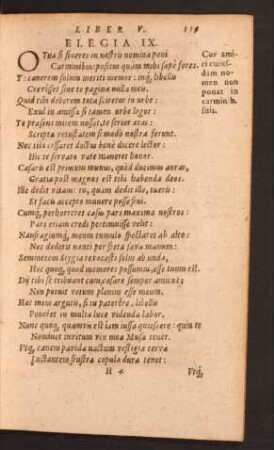 LIBER V. 119
ELEGIA IX.
O Tua si sineres in nostris nomina poni
Carminibus: positus quàm mihi sæpè fores.
Te canerem solum meriti memor: inq́; libellis
Crevisset sine te pagina nulla meis.
Quid tibi deberem tota sciretur in urbe:
Exul in amissa si tamen urbe legor:
Te præsens mitem nosset, te serior ætas:
Scripta vetustatem si modò nostra ferunt.
Nec tibi cessaret doctus benè dicere lector:
Hic te servato vate maneret honor.
Cæsaris est primum munus, quòd ducimus auras,
Gratia post magnos est tibi habenda deos.
Ille dedit vitam: tu, quam dedit ille, tueris:
Et facis accepto munere posse frui.
Cumq́; perhorreret casus pars maxima nostros:
Pars etiam credi pertimuisse velit:
Naufragiumq́; meum tumulo spectaret ab alto:
Nec dederit nanti per freta sæva manum:
Seminecem Stygia revocasti solus ab unda,
Hoc quoq; quòd memores possumus, esse tuum est.
Dij tibi se tribuant cum Cæsare semper amicos:
Non potuit votum plenius esse meum.
Hæc meus argutis, si tu paterêre, libellis
Poneret in multa luce videnda labor.
Nunc quoq; quamvis est iam iussa quiescere: quin te
Nominet invitum vix mea Musa tenet.
Vtq́; canem pavidæ nactum vestigia cervæ
Luctantem frustrà copula dura tenet:
H 4 Vtq́;
Cur ami-
ci cuius-
dam no-
men non
ponat in
carminib.
suis.